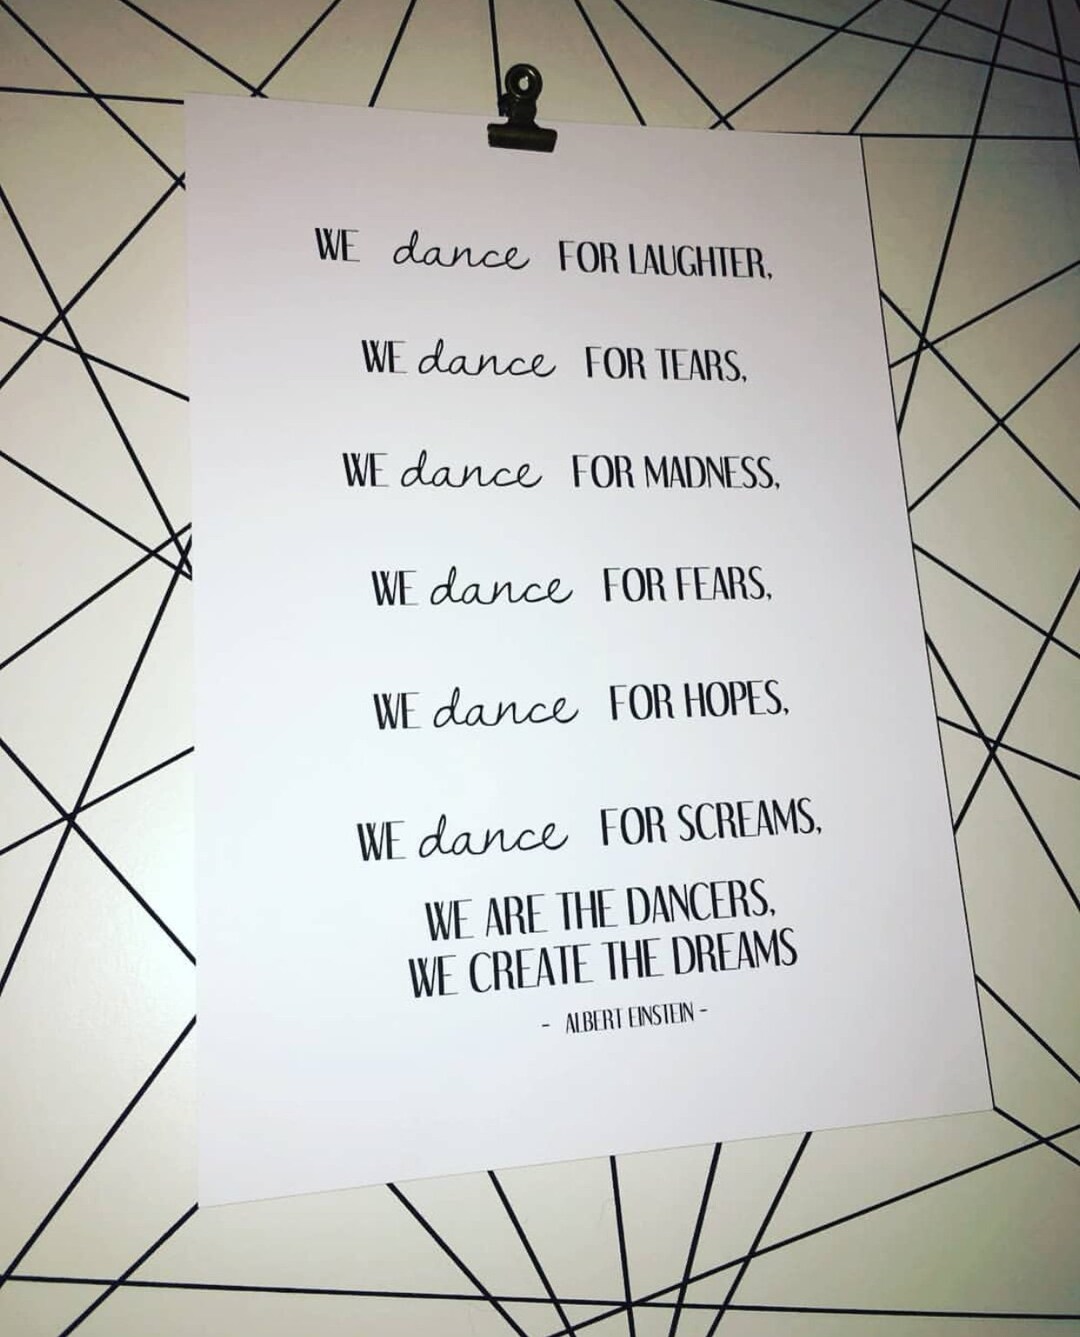 WE dance FOR LAUGHTER,
WE dance FOR TEARS,
WE dance FOR MADNESS,
WE dance FOR FEARS,
WE dance FOR HOPES,
WE dance FOR SCREAMS,
WE ARE THE DANCERS,
WE CREATE THE DREAMS
- ALBERT EINSTEIN -